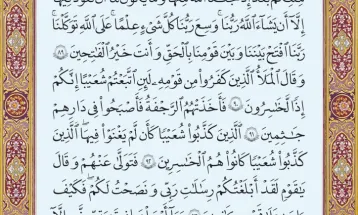 إِلَّآ أَن يَشَآءَ ٱللَّهُ رَبُّنَا ۚ وَسِعَ رَبُّنَا كُلَّ شَىْءٍ عِلْمًا ۚ عَلَى ٱللَّهِ تَوَكَّلْنَا ۚ
رَبَّنَا ٱفْتَحْ بَيْنَنَا وَبَيْنَ قَوْمِنَا بِٱلْحَقِّ وَأَنتَ خَيْرُ ٱلْفَٰتِحِينَ ٨٩
وَقَالَ ٱلْمَلَأُ ٱلَّذِينَ كَفَرُوا۟ مِن قَوْمِهِۦ لَئِنِ ٱتَّبَعْتُمْ شُعَيْبًا إِنَّكُمْ
إِذًا لَّخَٰسِرُونَ ٩٠ فَأَخَذَتْهُمُ ٱلرَّجْفَةُ فَأَصْبَحُوا۟ فِى دَارِهِمْ
جَٰثِمِينَ ٩١ ٱلَّذِينَ كَذَّبُوا۟ شُعَيْبًا كَأَن لَّمْ يَغْنَوْا۟ فِيهَا ۚ ٱلَّذِينَ
كَذَّبُوا۟ شُعَيْبًا كَانُوا۟ هُمُ ٱلْخَٰسِرِينَ ٩٢ فَتَوَلَّىٰ عَنْهُمْ وَقَالَ
يَٰقَوْمِ لَقَدْ أَبْلَغْتُكُمْ رِسَٰلَٰتِ رَبِّى وَنَصَحْتُ لَكُمْ ۖ فَكَيْفَ